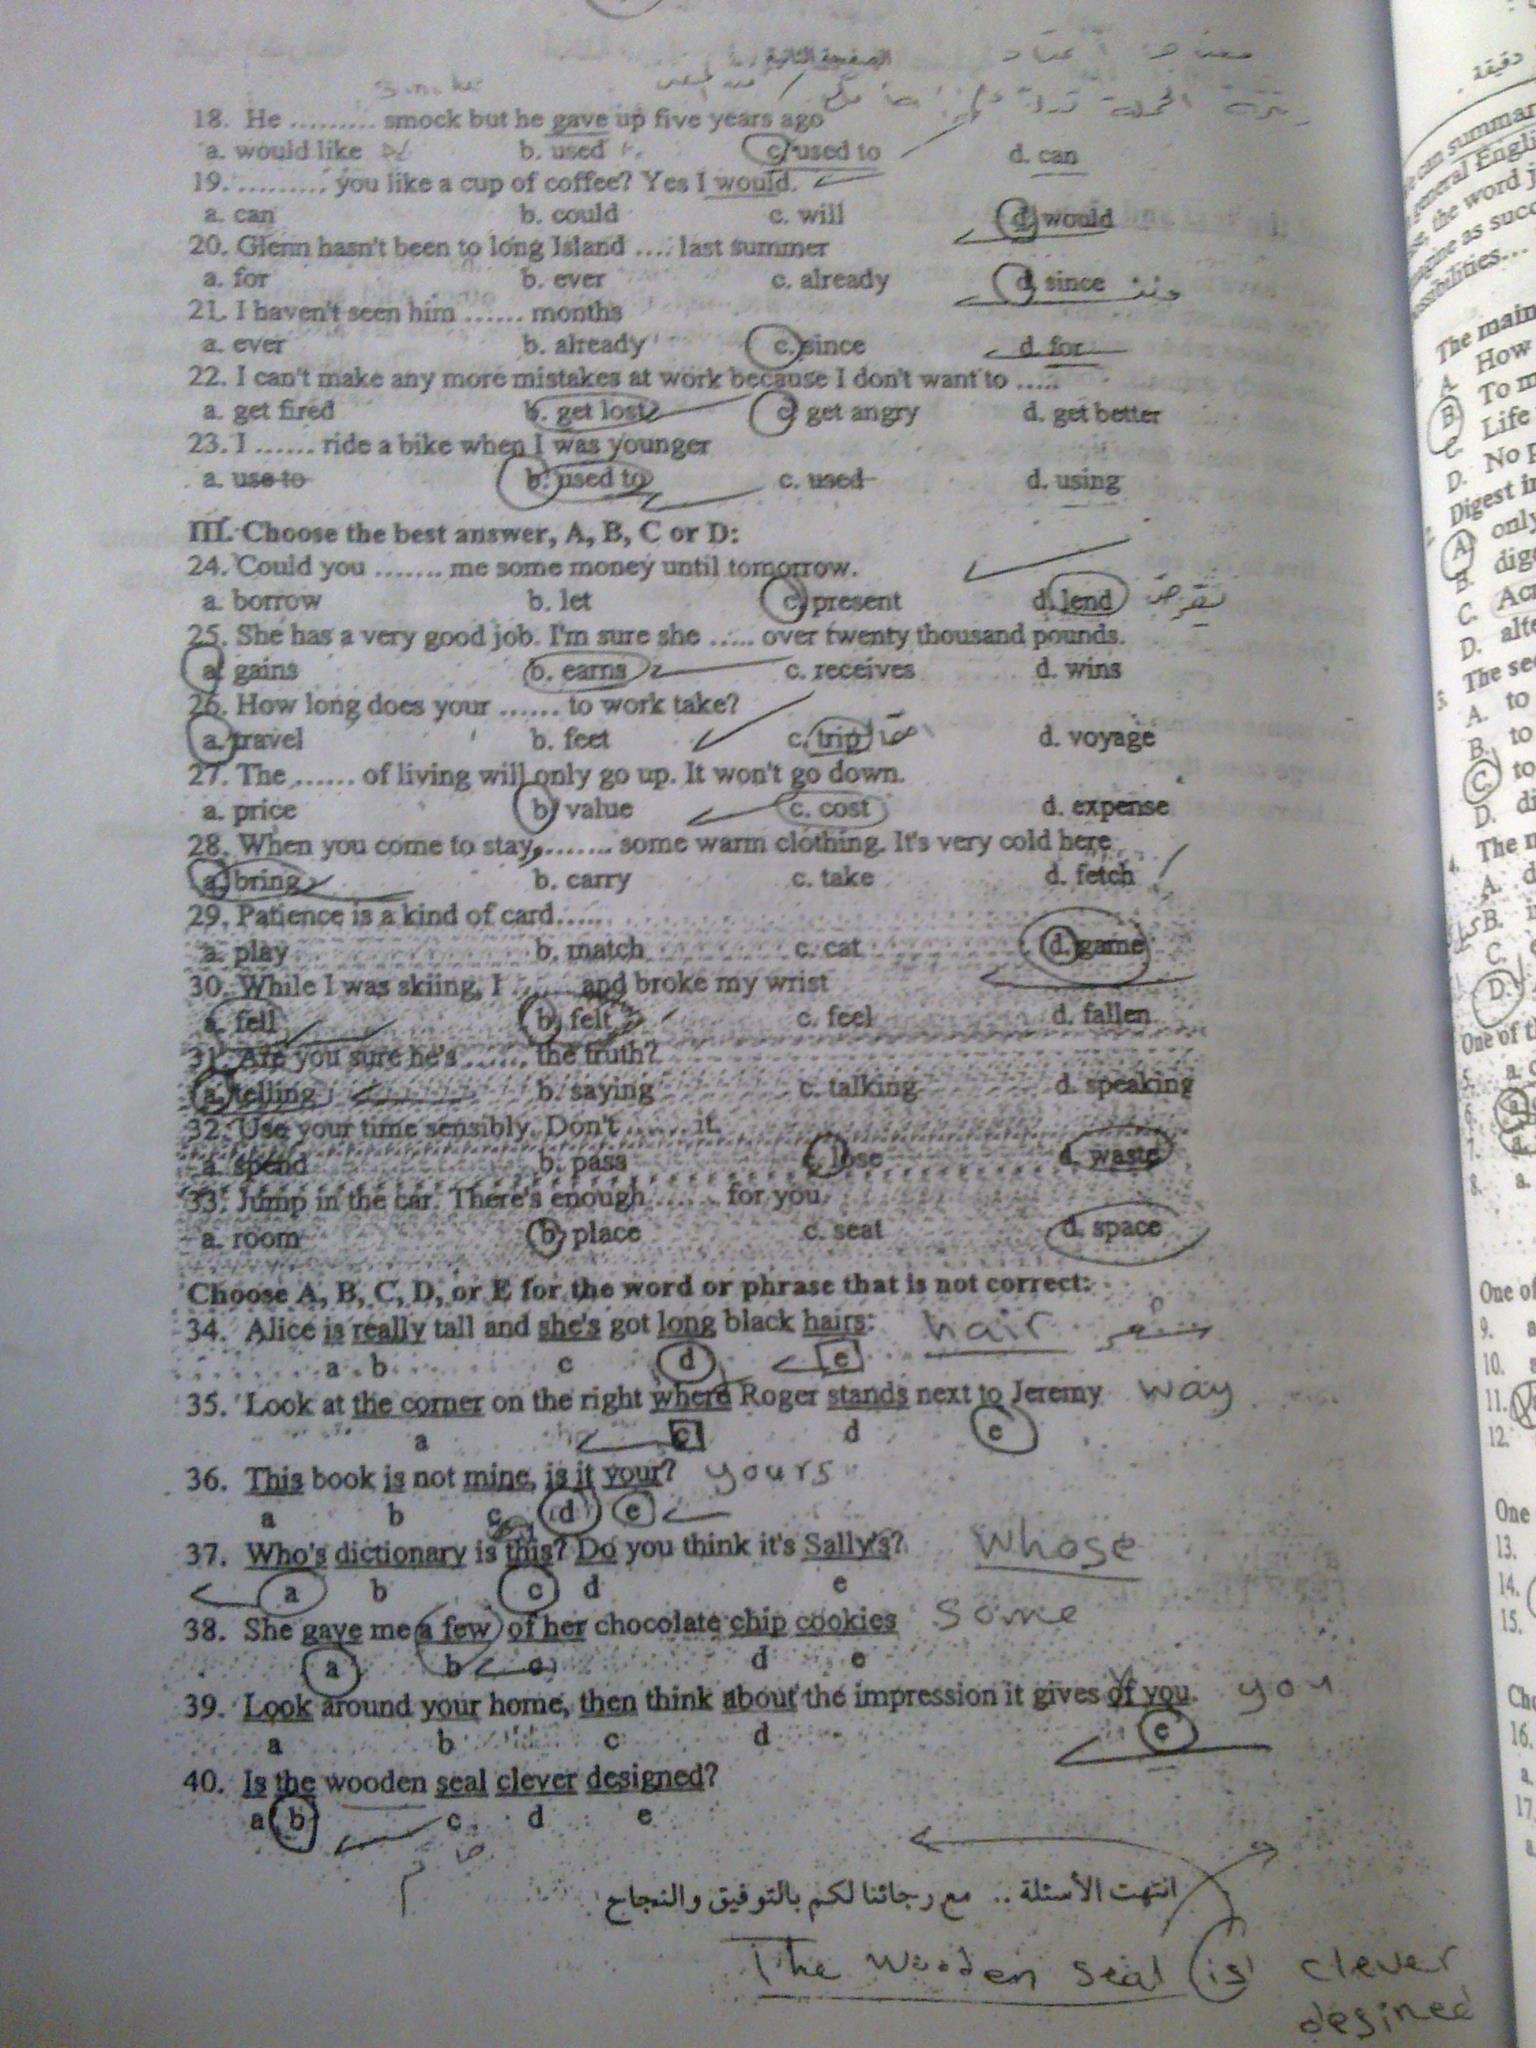 الصفحة الثانية
18. He ......... smock but he gave up five years ago
a. would like b. used c. used to d. can
19. ......... you like a cup of coffee? Yes I would.
a. can b. could c. will d. would
20. Glenn hasn't been to long Island .... last summer
a. for b. ever c. already d. since منذ
21. I haven't seen him ...... months
a. ever b. already c. since d. for
22. I can't make any more mistakes at work because I don't want to .....
a. get fired b. get lost c. get angry d. get better
23. I ...... ride a bike when I was younger
a. use to b. used to c. used d. using
III. Choose the best answer, A, B, C or D:
24. Could you ....... me some money until tomorrow.
a. borrow b. let c. present d. lend
25. She has a very good job. I'm sure she ..... over twenty thousand pounds.
a. gains b. earns c. receives d. wins
26. How long does your ...... to work take?
a. travel b. feet c. trip d. voyage
27. The ...... of living will only go up. It won't go down.
a. price b. value c. cost d. expense
28. When you come to stay, ....... some warm clothing. It's very cold here
a. bring b. carry c. take d. fetch
29. Patience is a kind of card.....
a. play b. match c. cat d. game
30. While I was skiing, I ...... and broke my wrist
a. fell b. felt c. feel d. fallen
31. Are you sure he's ...... the truth?
a. telling b. saying c. talking d. speaking
32. Use your time sensibly. Don't ...... it.
a. spend b. pass c. lose d. waste
33. Jump in the car. There's enough ...... for you.
a. room b. place c. seat d. space
Choose A, B, C, D, or E for the word or phrase that is not correct:
34. Alice is really tall and she's got long black hairs: hair شعر
a b c d e
35. Look at the corner on the right where Roger stands next to Jeremy way
a c d e
36. This book is not mine, is it your? yours
a b c d e
37. Who's dictionary is this? Do you think it's Sally's? whose
a b c d e
38. She gave me a few of her chocolate chip cookies some
a b c d e
39. Look around your home, then think about the impression it gives of you. you
a b c d e
40. Is the wooden seal clever designed?
a b c d e
انتهت الأسئلة .. مع رجائنا لكم بالتوفيق والنجاح
The wooden seal is clever
desined
دقيقة
can summar
general Engli
the word
imagine as succ
The main
A. How
B. To m
C. Life
D. No p
Digest in
A. only
B. dige
C. Acr
D. alte
The se
A. to
B. to
C. to
D. di
The m
A. d
B.
C.
D.
One of t
5. a.
7.
8. a.
One of
9. a
10.
11.
12.
One
13.
14.
15.
Cho
16.
a.
17
a.